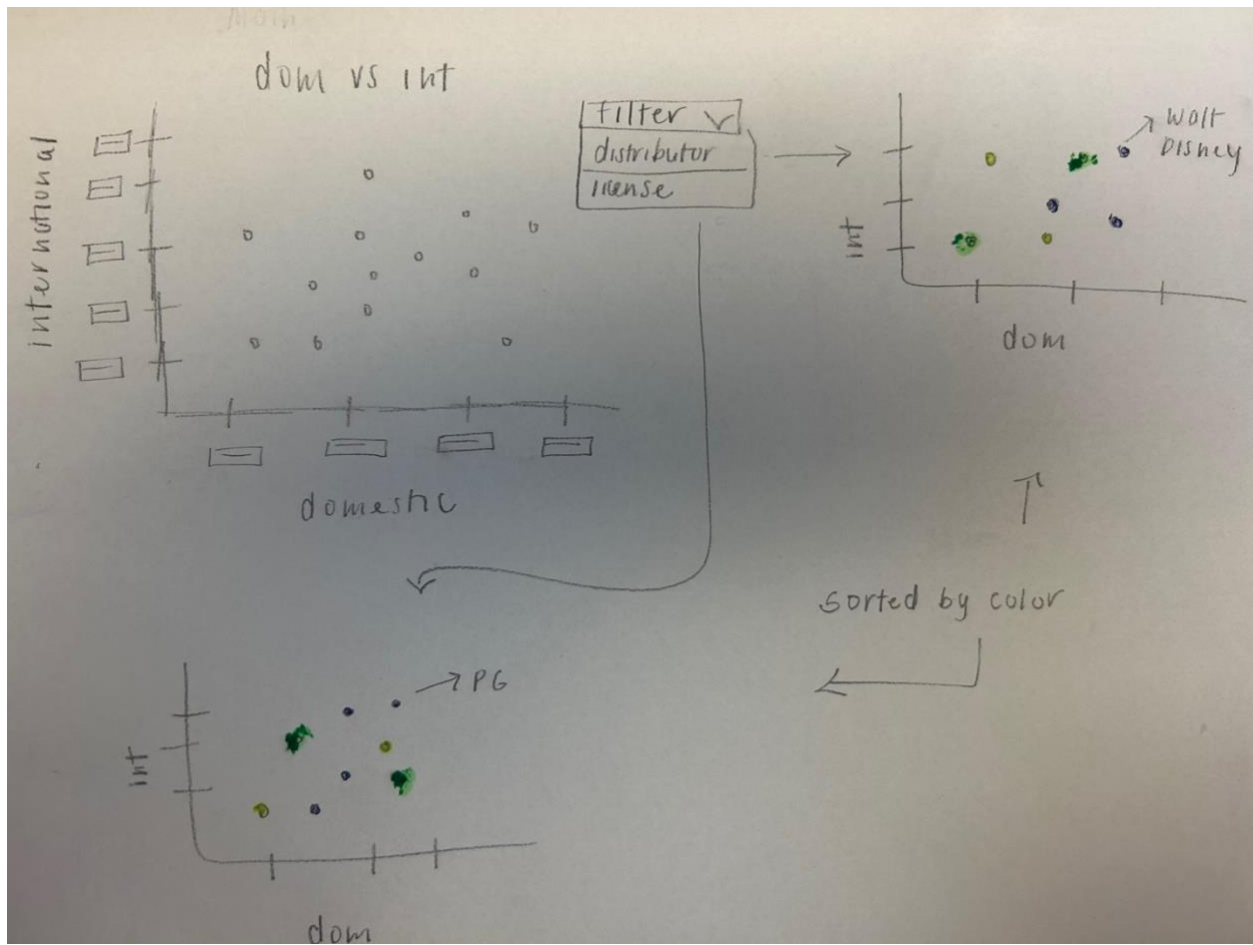 dom vs int
international
domestic
Filter
distributor
license
Walt
Disney
int
dom
sorted by color
PG
int
dom